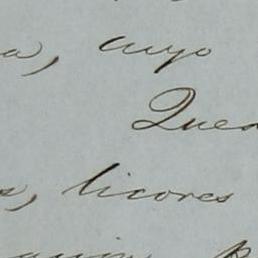 a, cuyo
Que
s, licores